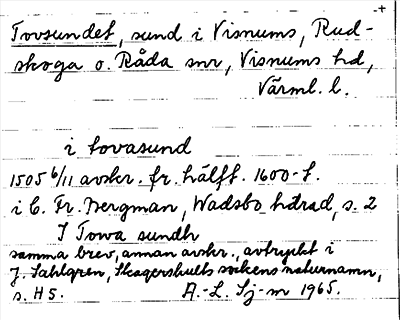 Tovsundet, sund i Visnums, Rud-
skoga o. Råda snr, Visnums hd,
Värml. l.
i tovasund
1505 6/11 avskr. fr. hälft. 1600-t.
i C. Fr. Bergman, Wadsbo härad, s. 2
J Towa sundh
samma brev, annan avskr., avtryckt i
J. Sahlgren, Skagershults sockens naturnamn,
s. H5. A.-L. Sj-m 1965.